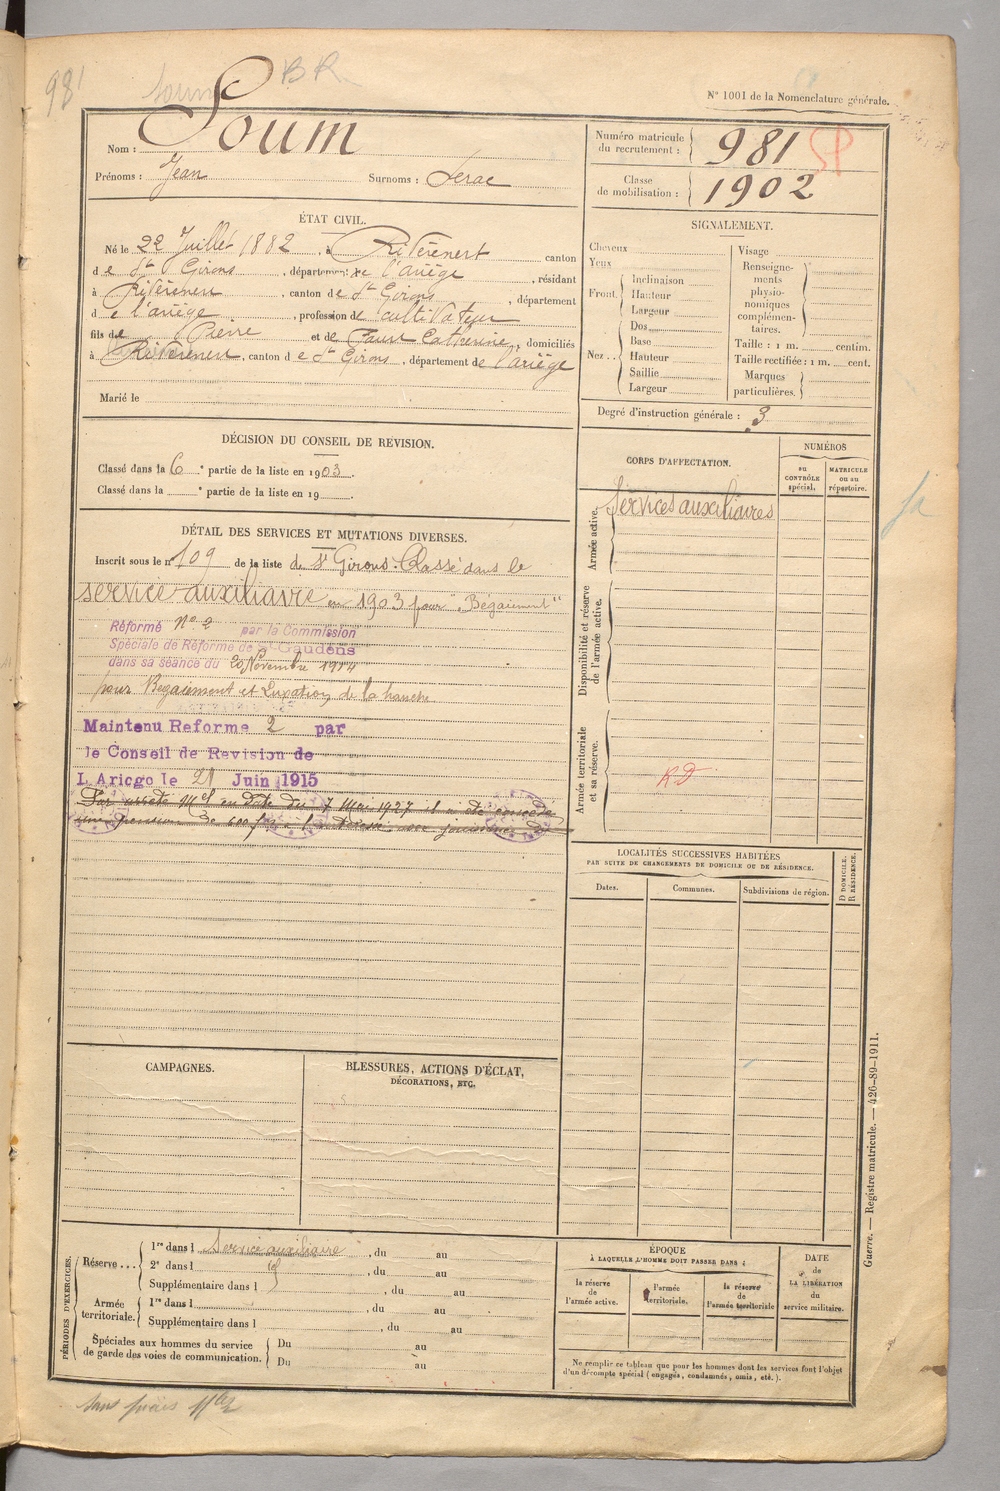 981
Soum
BR
N° 1001 de la Nomenclature générale.
Nom : Soum
Prénoms : Jean Surnoms : Serac
Numéro matricule du recrutement : 981 SP
Classe de mobilisation : 1902
ÉTAT CIVIL.
Né le 22 Juillet 1882, à Rivèrenert canton
de St Girons, département de l'ariège, résidant
à Rivèrenert, canton de St Girons, département
de l'ariège, profession de cultivateur
fils de Pierre et de Faur Catherine, domiciliés
à Rivèrenert, canton de St Girons, département de l'ariège
Marié le
SIGNALEMENT.
Cheveux
Yeux
Front. Inclinaison
Hauteur
Largeur
Nez.. Dos
Base
Hauteur
Saillie
Largeur
Visage
Renseignements physionomiques complémentaires.
Taille : 1 m. centim.
Taille rectifiée : 1 m. cent.
Marques particulières.
Degré d'instruction générale : 3
DÉCISION DU CONSEIL DE RÉVISION.
Classé dans la 6e partie de la liste en 1903.
Classé dans la e partie de la liste en 19 .
CORPS D'AFFECTATION.
NUMÉROS
au CONTRÔLE spécial.
MATRICULE ou au répertoire.
Armée active.
Services auxiliaires
Disponibilité et réserve de l'armée active.
Armée territoriale et sa réserve.
RD
DÉTAIL DES SERVICES ET MUTATIONS DIVERSES.
Inscrit sous le n° 109 de la liste de St Girons. Classé dans le
service auxiliaire en 1903 pour "Bégaiement"
Réformé N° 2 par la Commission
Spéciale de Réforme de St Gaudens
dans sa séance du 20 Novembre 1914
pour Bégaiement et Luxation de la hanche
Maintenu Reforme 2 par
le Conseil de Revision de
L'Ariege le 21 Juin 1915
Par arrêté Mel en date du 7 Mai 1927 il a été concédé
une pension de 600 frs à avec jouissance
LOCALITÉS SUCCESSIVES HABITÉES
PAR SUITE DE CHANGEMENTS DE DOMICILE OU DE RÉSIDENCE.
Dates.
Communes.
Subdivisions de région.
D DOMICILE.
R RÉSIDENCE.
CAMPAGNES.
BLESSURES, ACTIONS D'ÉCLAT,
DÉCORATIONS, ETC.
PÉRIODES D'EXERCICES.
Réserve... 1re dans l Service auxiliaire, du au
2e dans l id, du au
Supplémentaire dans l , du au
Armée territoriale. 1re dans l , du au
Supplémentaire dans l , du au
Spéciales aux hommes du service
de garde des voies de communication.
Du au
Du au
ÉPOQUE
À LAQUELLE L'HOMME DOIT PASSER DANS :
la réserve de l'armée active.
l'armée territoriale.
la réserve de l'armée territoriale
DATE de LA LIBÉRATION du service militaire.
Ne remplir ce tableau que pour les hommes dont les services font l'objet
d'un décompte spécial (engagés, condamnés, omis, etc.).
Guerre. — Registre matricule. — 426-89-1911.